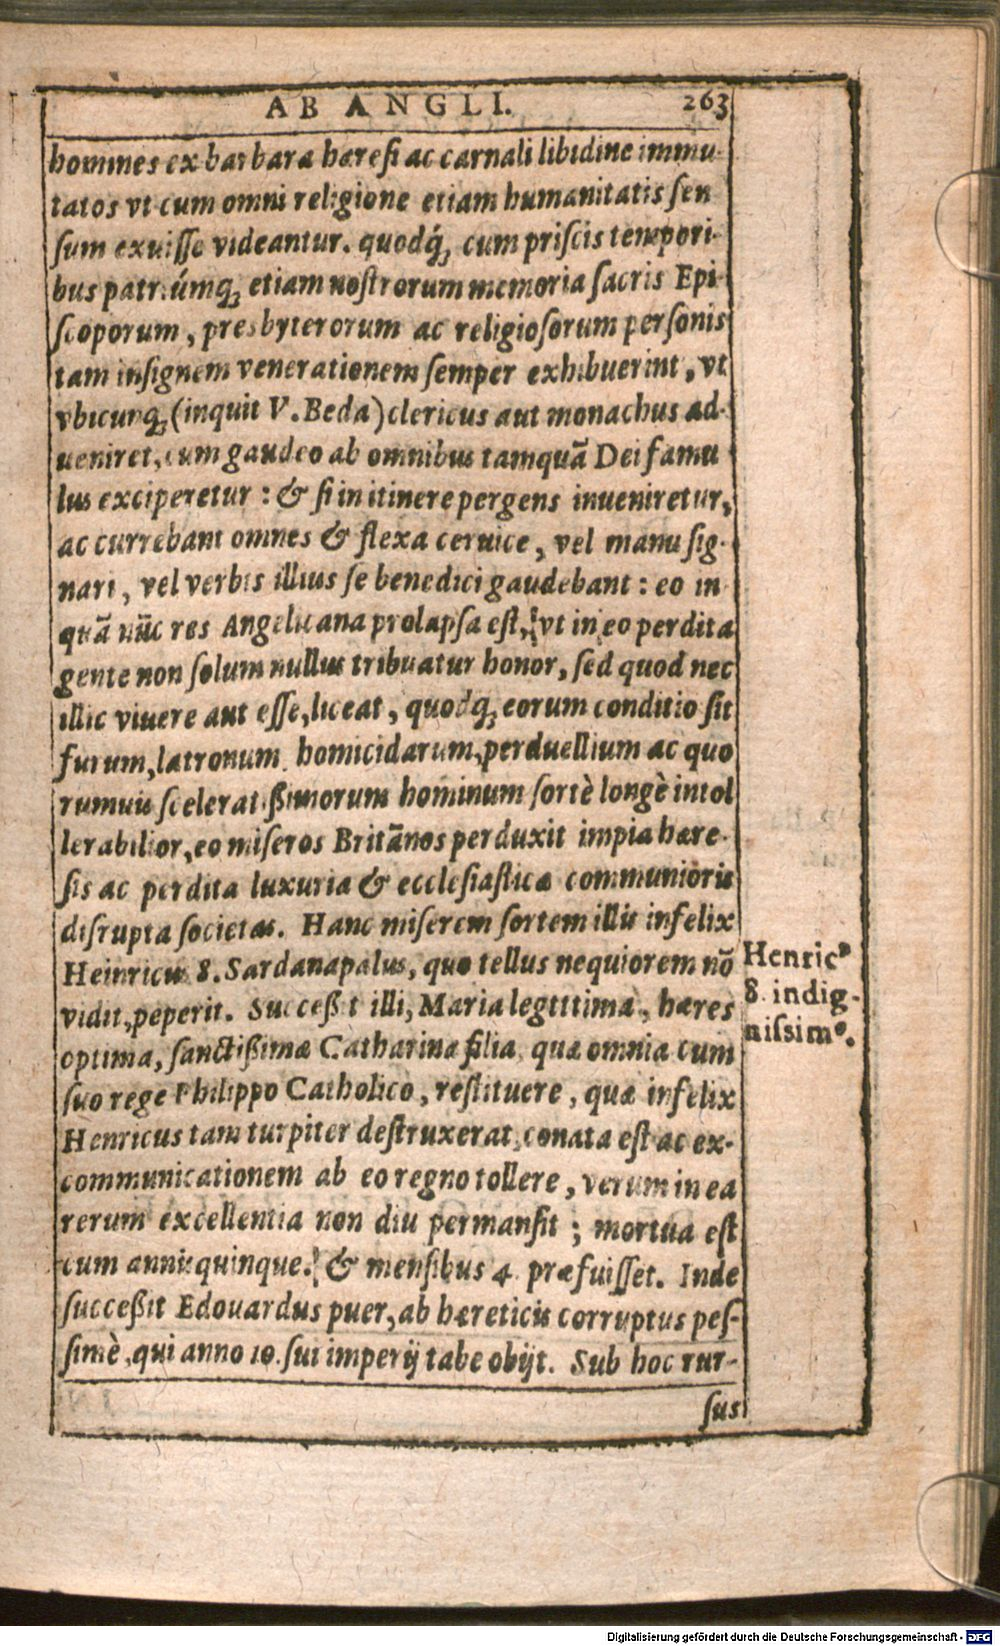 AB ANGLI. 263
homines ex barbara hæresi ac carnali libidine immu-
tatos vt cum omni religione etiam humanitatis sen
sum exuisse videantur. quodq́ꝫ cum priscis tempori-
bus patrúmqꝫ etiam nostrorum memoria sacris Epi-
scoporum, presbyterorum ac religiosorum personis
tam insignem venerationem semper exhibuerint, vt
vbicunqꝫ (inquit V. Beda) clericus aut monachus ad-
ueniret, cum gaudeo ab omnibus tamquã Dei famu
lus exciperetur: & si in itinere pergens inueniretur,
accurrebant omnes & flexa ceruice, vel manu sig-
nari, vel verbis illius se benedici gaudebant: eo in-
quã nũc res Angelicana prolapsa est, vt in eo perdita
gente non solum nullus tribuatur honor, sed quod nec
illic viuere aut esse, liceat, quodqꝫ eorum conditio sit
furum, latronum homicidarum, perduellium ac quo
rumuis sceleratißimorum hominum sortè longè intol
lerabilior, eo miseros Britãnos perduxit impia hære-
sis ac perdita luxuria & ecclesiasticæ communionis
disrupta societas. Hanc miserem sortem illis infelix
Heinricus 8. Sardanapalus, quo tellus nequiorem nõ
vidit, peperit. Succeßit illi, Maria legttima, hæres
optima, sanctißimæ Catharinæ filia, quæ omnia cum
suo rege Philippo Catholico, restituere, quæ infelix
Henricus tam turpiter destruxerat, conata est ac ex-
communicationem ab eo regno tollere, verum in ea
rerum excellentia non diu permansit; mortua est
cum annis quinque. & mensibus 4. præfuisset. Inde
succeßit Edouardus puer, ab hæreticis corruptus pes-
simè, qui anno 10. sui imperij tabe obijt. Sub hoc rur-
sus
Henricꝰ
8. indig-
nissimꝰ.
Digitalisierung gefördert durch die Deutsche Forschungsgemeinschaft - DFG